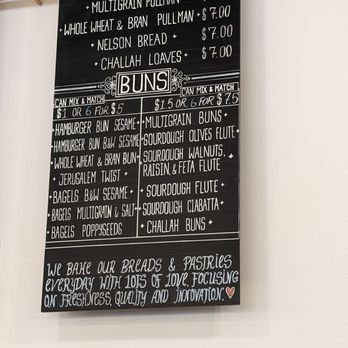 MULTIGRAIN PULLMAN
WHOLE WHEAT & BRAN PULLMAN $7.00
NELSON BREAD $7.00
CHALLAH LOAVES $7.00
BUNS
CAN MIX & MATCH
$1 OR 6 FOR $5
HAMBURGER BUN SESAME
HAMBURGER BUN B&W SESAME
WHOLE WHEAT & BRAN BUN
JERUSALEM TWIST
BAGELS B&W SESAME
BAGELS MULTIGRAIN & SALT
BAGELS POPPYSEEDS
CAN MIX & MATCH
$1.5 OR 6 FOR $7.5
MULTIGRAIN BUNS
SOURDOUGH OLIVES FLUTE
SOURDOUGH WALNUTS,
RAISIN, & FETA FLUTE
SOURDOUGH FLUTE
SOURDOUGH CIABATTA
CHALLAH BUNS
WE BAKE OUR BREADS & PASTRIES
EVERYDAY WITH LOTS OF LOVE, FOCUSING
ON FRESHNESS, QUALITY AND INNOVATION.